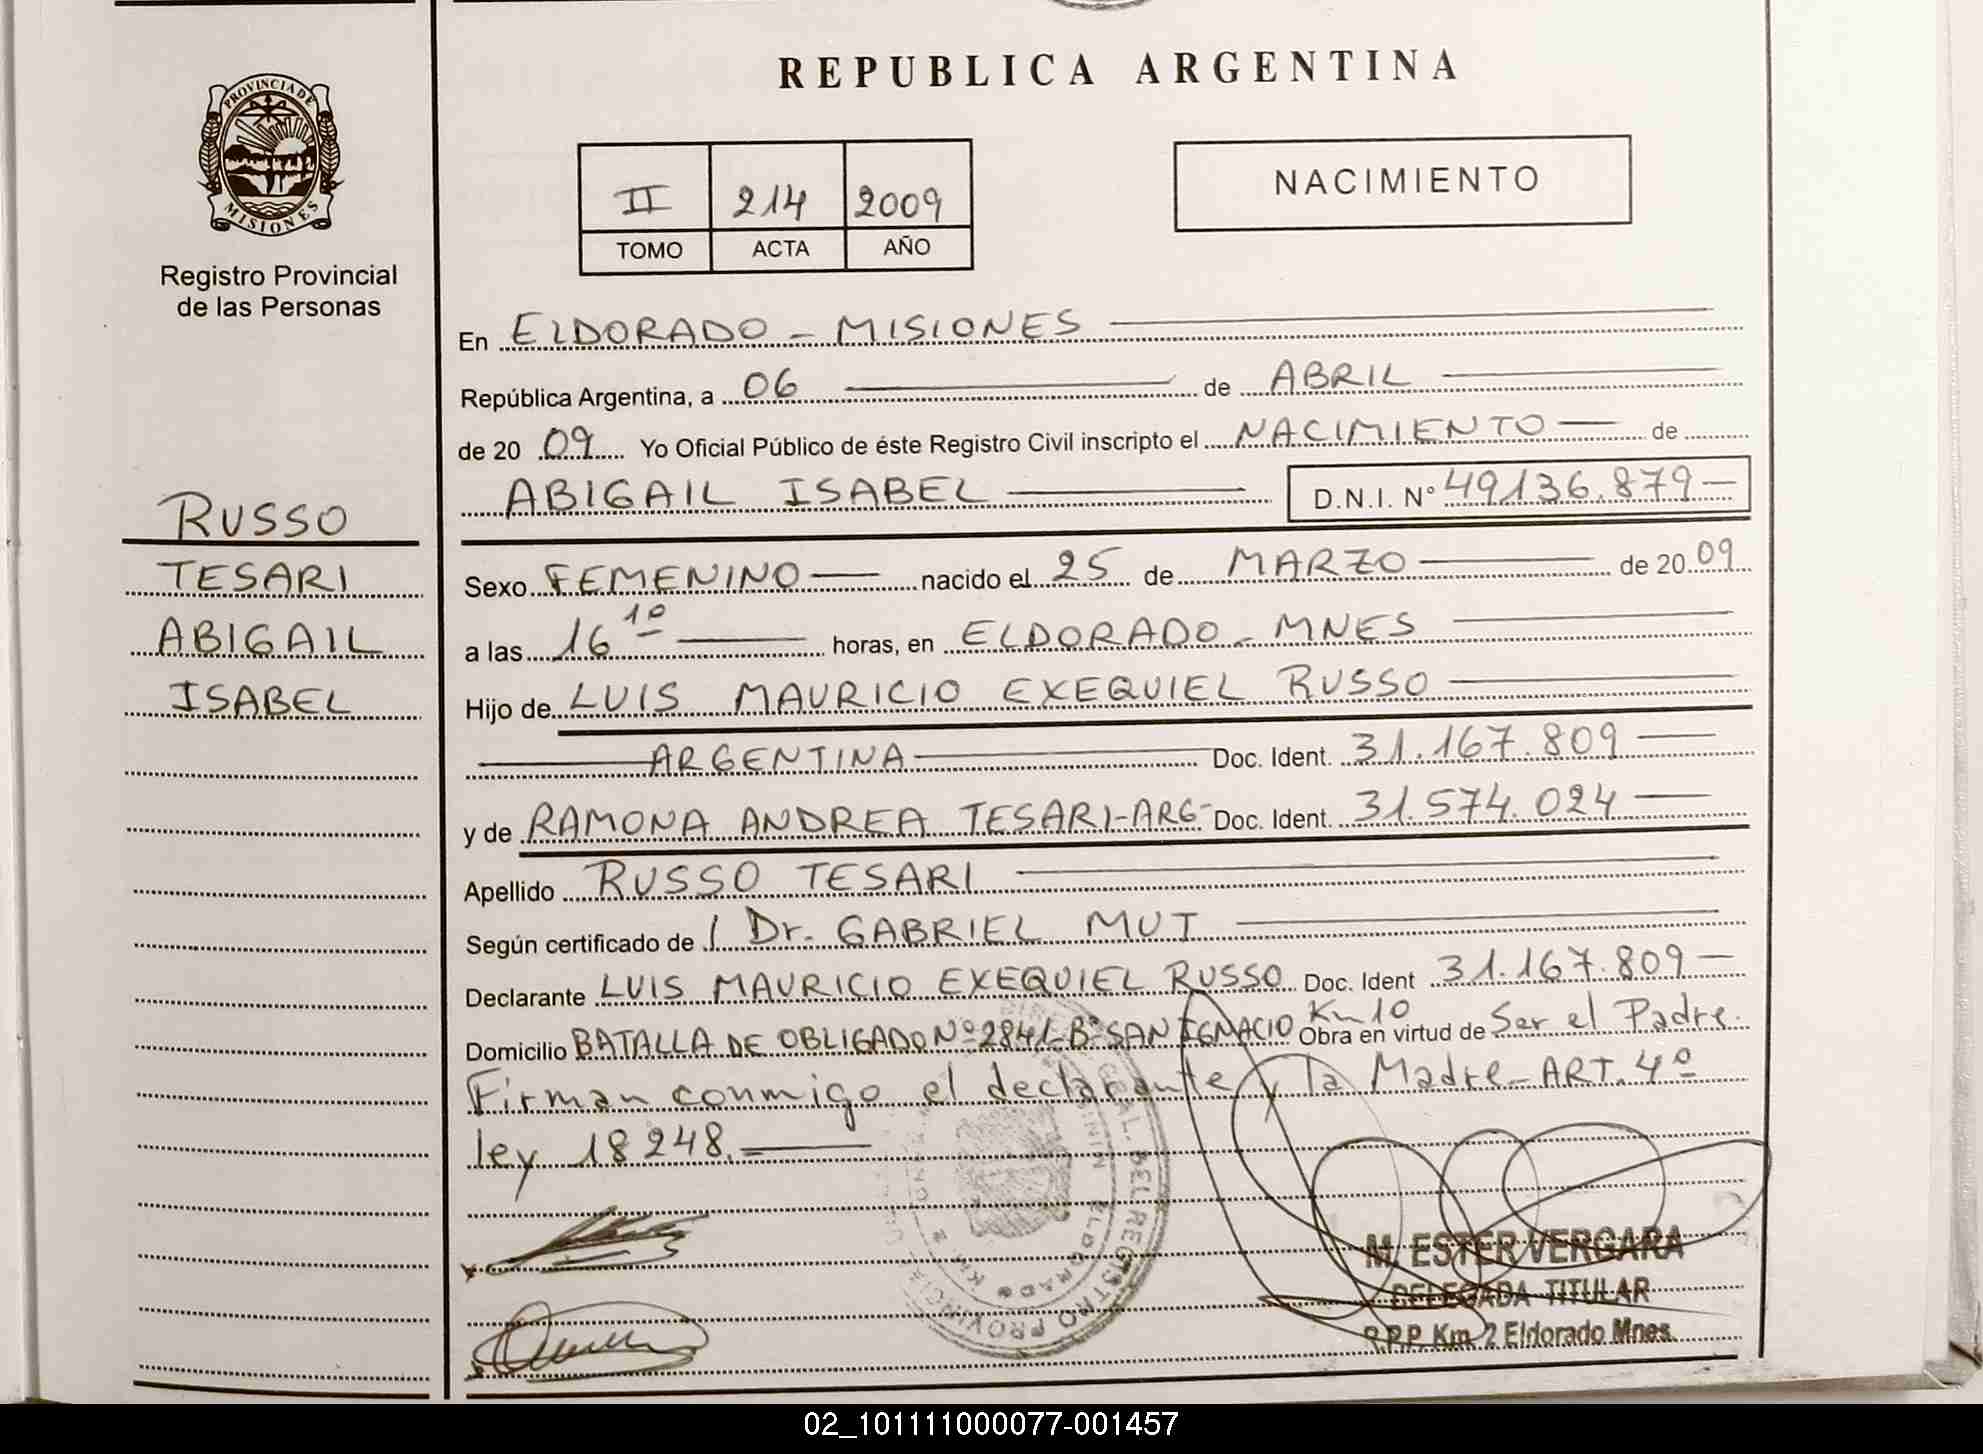 REPUBLICA ARGENTINA
PROVINCIA DE
MISIONES
Registro Provincial
de las Personas
II 214 2009
TOMO ACTA AÑO
NACIMIENTO
RUSSO
TESARI
ABIGAIL
ISABEL
En ELDORADO - MISIONES
República Argentina, a 06 de ABRIL
de 20 09 Yo Oficial Público de éste Registro Civil inscripto el NACIMIENTO de
ABIGAIL ISABEL D.N.I. N° 49136.879
Sexo FEMENINO nacido el 25 de MARZO de 20 09
a las 16 10 horas, en ELDORADO - MNES
Hijo de LUIS MAURICIO EXEQUIEL RUSSO
ARGENTINA Doc. Ident. 31.167.809
y de RAMONA ANDREA TESARI-ARG- Doc. Ident. 31.574.024
Apellido RUSSO TESARI
Según certificado de Dr. GABRIEL MUT
Declarante LUIS MAURICIO EXEQUIEL RUSSO Doc. Ident 31.167.809
Domicilio BATALLA DE OBLIGADO Nº 2841-Bº SAN IGNACIO Km 10 Obra en virtud de Ser el Padre.
Firman conmigo el declarante y la Madre - ART. 4º
ley 18248.
M. ESTER VERGARA
DELEGADA TITULAR
R.P.P. Km 2 Eldorado Mnes.
02_101111000077-001457